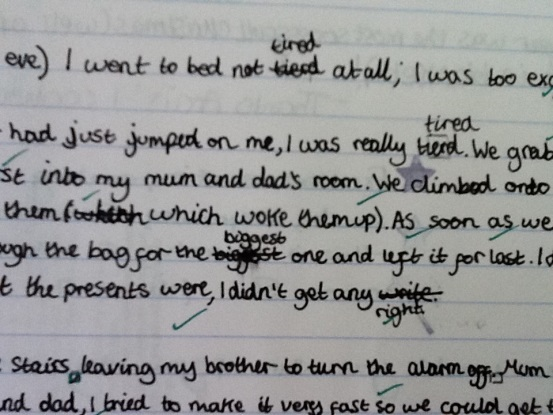 tired
eve) I went to bed not tierd at all; I was too
had just jumped on me, I was really tierd. We grab
tired
st into my mum and dad's room. We climbed onto
them ( which woke them up). As soon as we
biggest
ugh the bag for the one and left it for last. I
t the presents were, I didn't get any write.
right.
Stairs, leaving my brother to turn the alarm off. Mum
nd dad, I tried to make it very fast so we could get